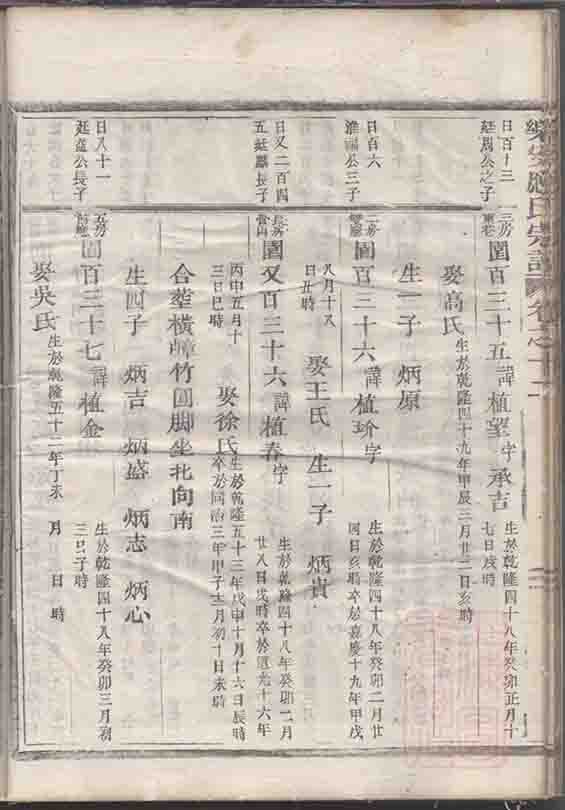 氏宗譜 卷之十二
日百十三
廷周公之子
三房
東巷
圓百三十五諱植望字承吉
生於乾隆四十八年癸卯正月十
七日戌時
娶高氏
生於乾隆四十九年甲辰三月廿二日亥時
生一子 炳原
日百六
淮福公三子
二房
圓百三十六諱植玠字
生於乾隆四十八年癸卯二月廿
四日亥時卒於嘉慶十九年甲戌
八月十又
日丑時
娶王氏 生一子 炳貴
日又二百四
五廷麟長子
長房
圓又百三十六諱植春字
生於乾隆四十八年癸卯二月
廿八日戌時卒於道光十六年
丙申五月十
三日巳時
娶徐氏
生於乾隆五十三年戊申十月十六日辰時
卒於同治三年甲子十二月初十日未時
合塋橫嶂竹園脚坐北向南
生四子 炳吉 炳盛 炳志 炳心
日八十一
廷 公長子
五房
圓百三十七諱植金
生於乾隆四十八年癸卯三月初
三日子時
娶吳氏
生於乾隆五十二年丁未 月 日 時